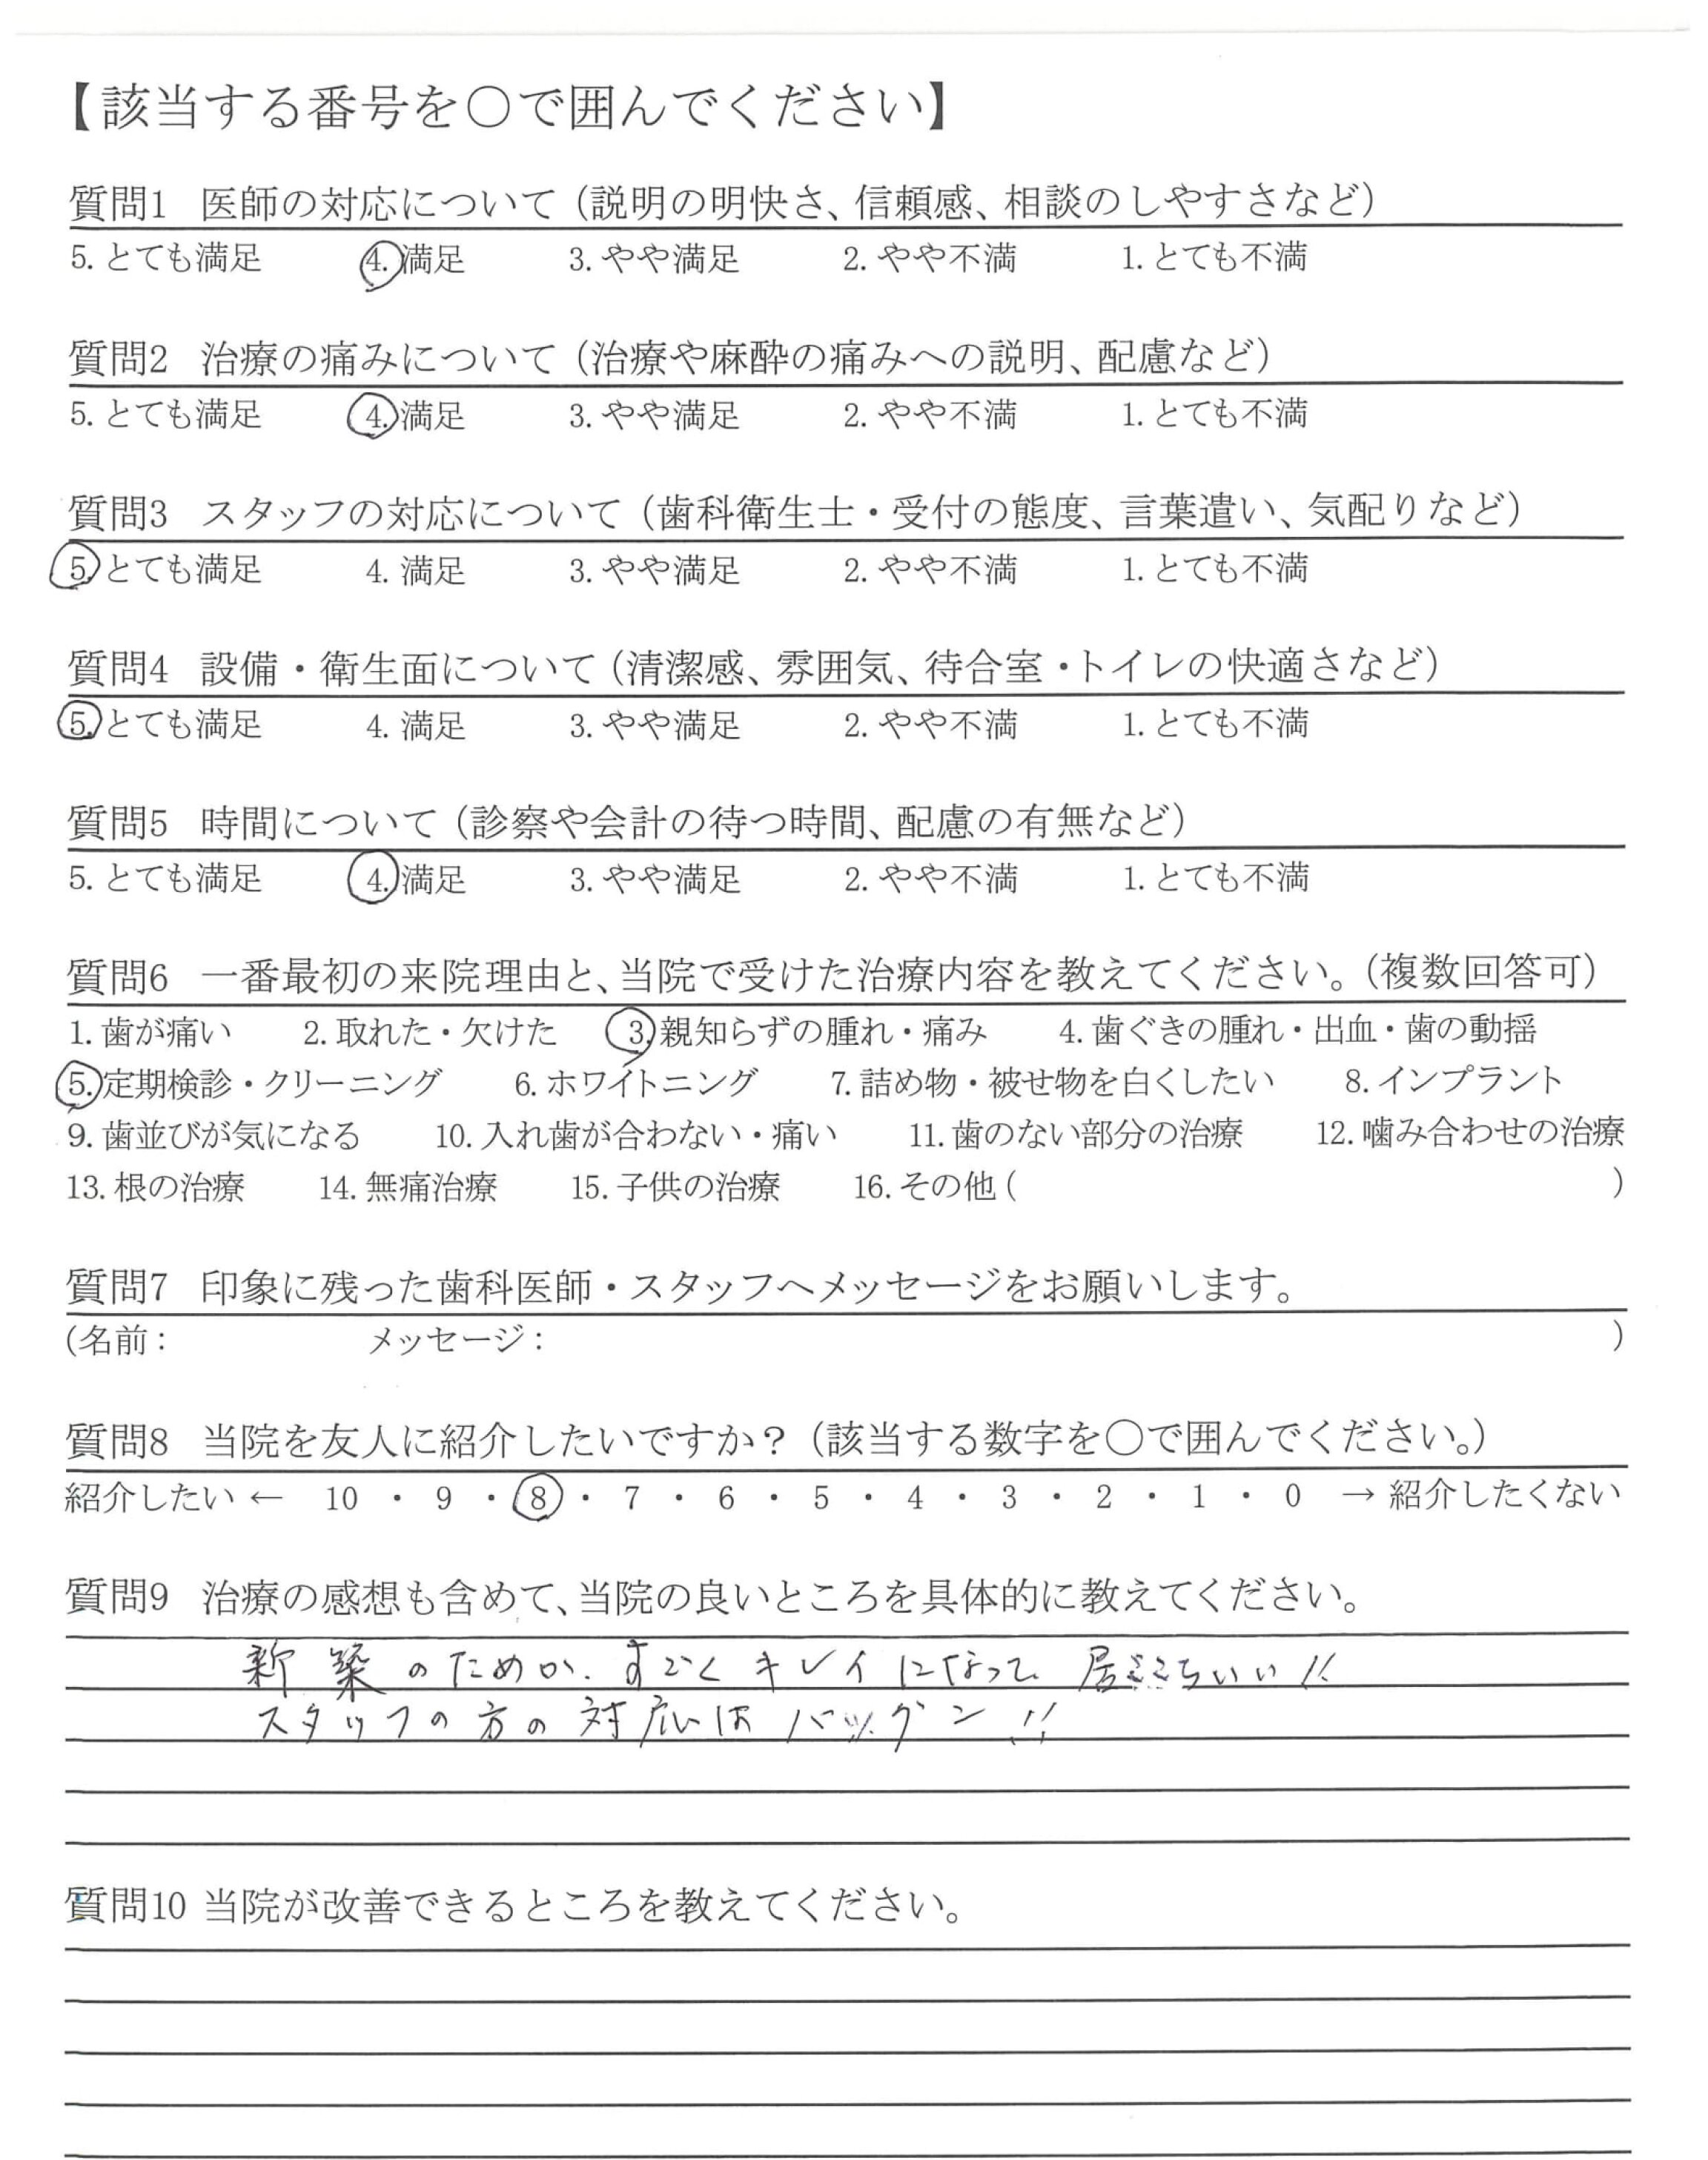 【該当する番号を○で囲んでください】
質問1 医師の対応について（説明の明快さ、信頼感、相談のしやすさなど）
5. とても満足 4. 満足 3. やや満足 2. やや不満 1. とても不満
質問2 治療の痛みについて（治療や麻酔の痛みへの説明、配慮など）
5. とても満足 4. 満足 3. やや満足 2. やや不満 1. とても不満
質問3 スタッフの対応について（歯科衛生士・受付の態度、言葉遣い、気配りなど）
5. とても満足 4. 満足 3. やや満足 2. やや不満 1. とても不満
質問4 設備・衛生面について（清潔感、雰囲気、待合室・トイレの快適さなど）
5. とても満足 4. 満足 3. やや満足 2. やや不満 1. とても不満
質問5 時間について（診察や会計の待つ時間、配慮の有無など）
5. とても満足 4. 満足 3. やや満足 2. やや不満 1. とても不満
質問6 一番最初の来院理由と、当院で受けた治療内容を教えてください。（複数回答可）
1. 歯が痛い 2. 取れた・欠けた 3. 親知らずの腫れ・痛み 4. 歯ぐきの腫れ・出血・歯の動揺
5. 定期検診・クリーニング 6. ホワイトニング 7. 詰め物・被せ物を白くしたい 8. インプラント
9. 歯並びが気になる 10. 入れ歯が合わない・痛い 11. 歯のない部分の治療 12. 噛み合わせの治療
13. 根の治療 14. 無痛治療 15. 子供の治療 16. その他 ( )
質問7 印象に残った歯科医師・スタッフへメッセージをお願いします。
(名前： メッセージ： )
質問8 当院を友人に紹介したいですか？（該当する数字を○で囲んでください。）
紹介したい ← 10 ・ 9 ・ 8 ・ 7 ・ 6 ・ 5 ・ 4 ・ 3 ・ 2 ・ 1 ・ 0 → 紹介したくない
質問9 治療の感想も含めて、当院の良いところを具体的に教えてください。
新築のためか、すごくキレイになって居ごこちいい!!
スタッフの方の対応はバツグン!!
質問10 当院が改善できるところを教えてください。